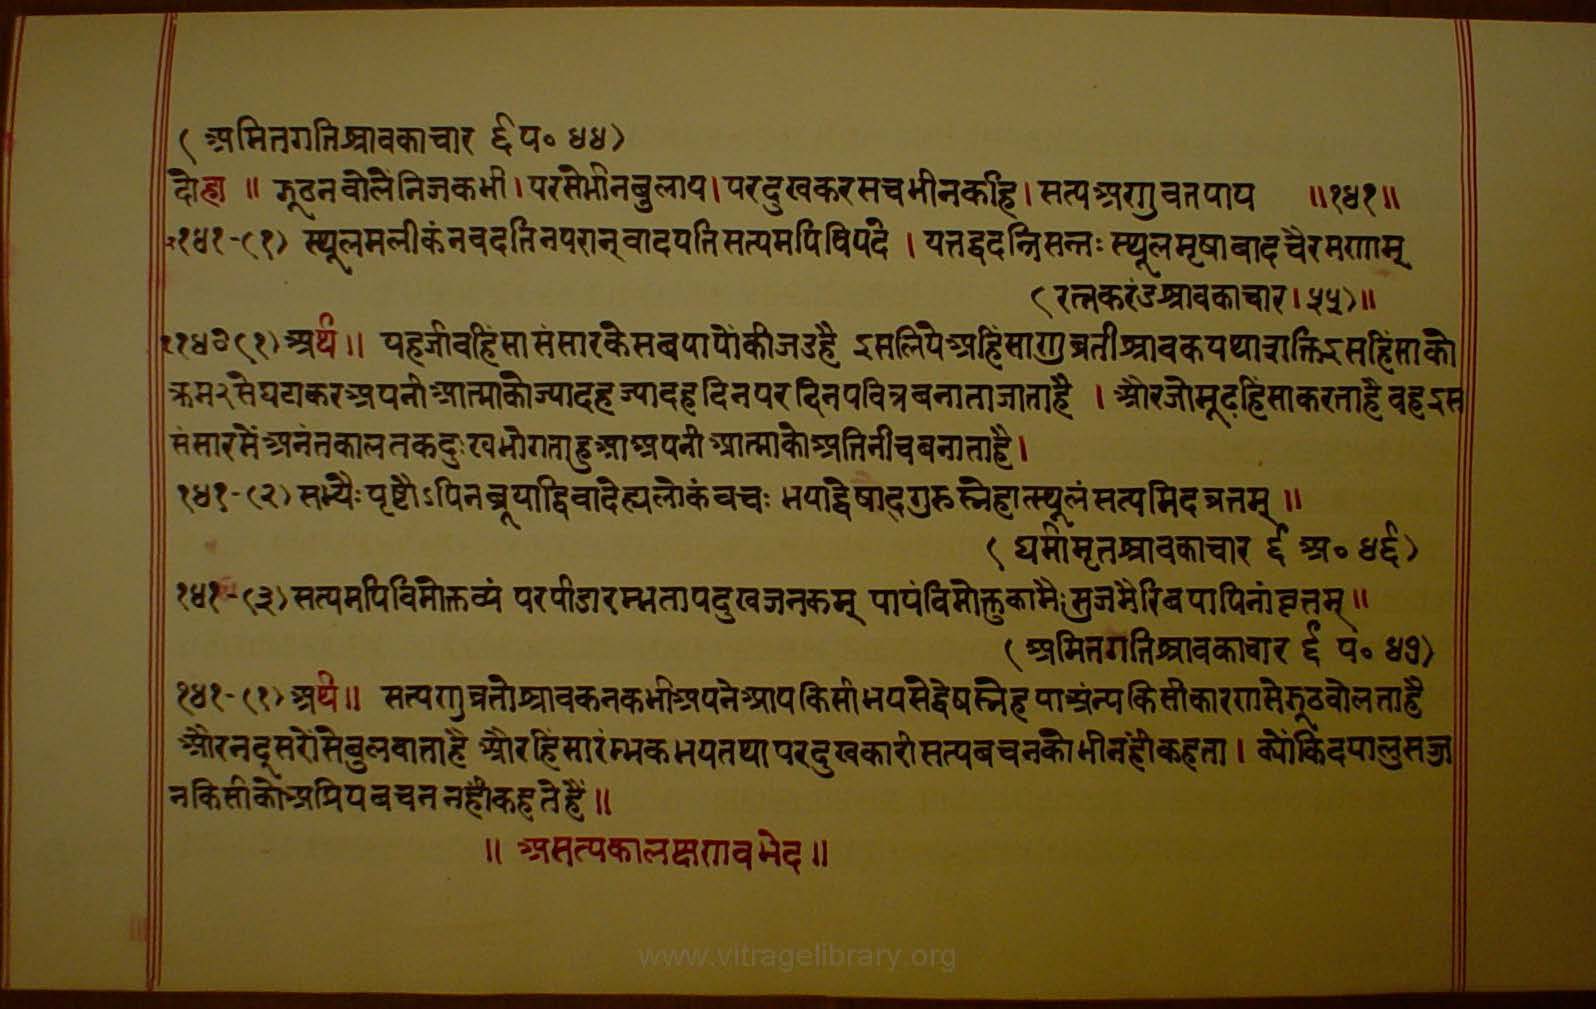 ( अमितगतिश्रावकाचार ६ प० ४४)
दोहा ॥ झूठनबोलेनिजकभी।परसेभीनबुलाय।परदुखकरसचभीनकहि।सत्यअणुवतपाय ॥१४१॥
१४१-(१) स्थूलमलीकंनवदतिनपरान्वादयतिसत्यमपिविपदे । यत्तद्वदन्तिसन्तः स्थूलमृषावादवैरमणाम्
(रत्नकरंडश्रावकाचार।५५)॥
१४०(१)अर्थ॥ यहजीवहिंसासंसारकेसबपापोंकीजडहै इसलियेअहिंसाणुव्रतीश्रावकयथाशक्तिइसहिंसाको
क्रम२सेघटाकरअपनीआत्माकोज्यादहज्यादहदिनपरदिनपवित्रबनाताजाताहै । औरजोमूढहिंसाकरताहैवहइस
संसारमेंअनंतकालतकदुःखभोगताहुआअपनीआत्माकोअतिनीचबनाताहै।
१४१-(२)सभ्यैःपृष्टौऽपिनब्रूयाद्विवादेह्यलोकंवचः भयाद्वेषाद्गुरुस्नेहात्स्थूलंसत्यमिदव्रतम् ॥
( धर्मामृतश्रावकाचार ६ अ० ४६)
१४१-(३)सत्यमपिविमोक्तव्यं परपीडारम्भतापदुखजनकम् पापंविमोक्तुकामैःसुजनैरिवपापिनांवृत्तम्॥
(अमितगतिश्रावकाचार ६ प० ४७)
१४१-(१)अर्थ॥ सत्यणुव्रतीश्रावकनकभीअपनेआपकिसीभयसेद्वेषस्नेहयाअंन्यकिसीकारणसेझूठबोलताहै
औरनदूसरोंसेबुलवाताहै औरहिंसारंम्भकभयतथापरदुखकारीसत्यबचनकोभीनहींकहता। क्योंकिदयालुसज्ज
नकिसीकोअप्रियबचननहींकहतेहैं॥
॥ असत्यकालक्षणवभेद॥
www.vitragelibrary.org